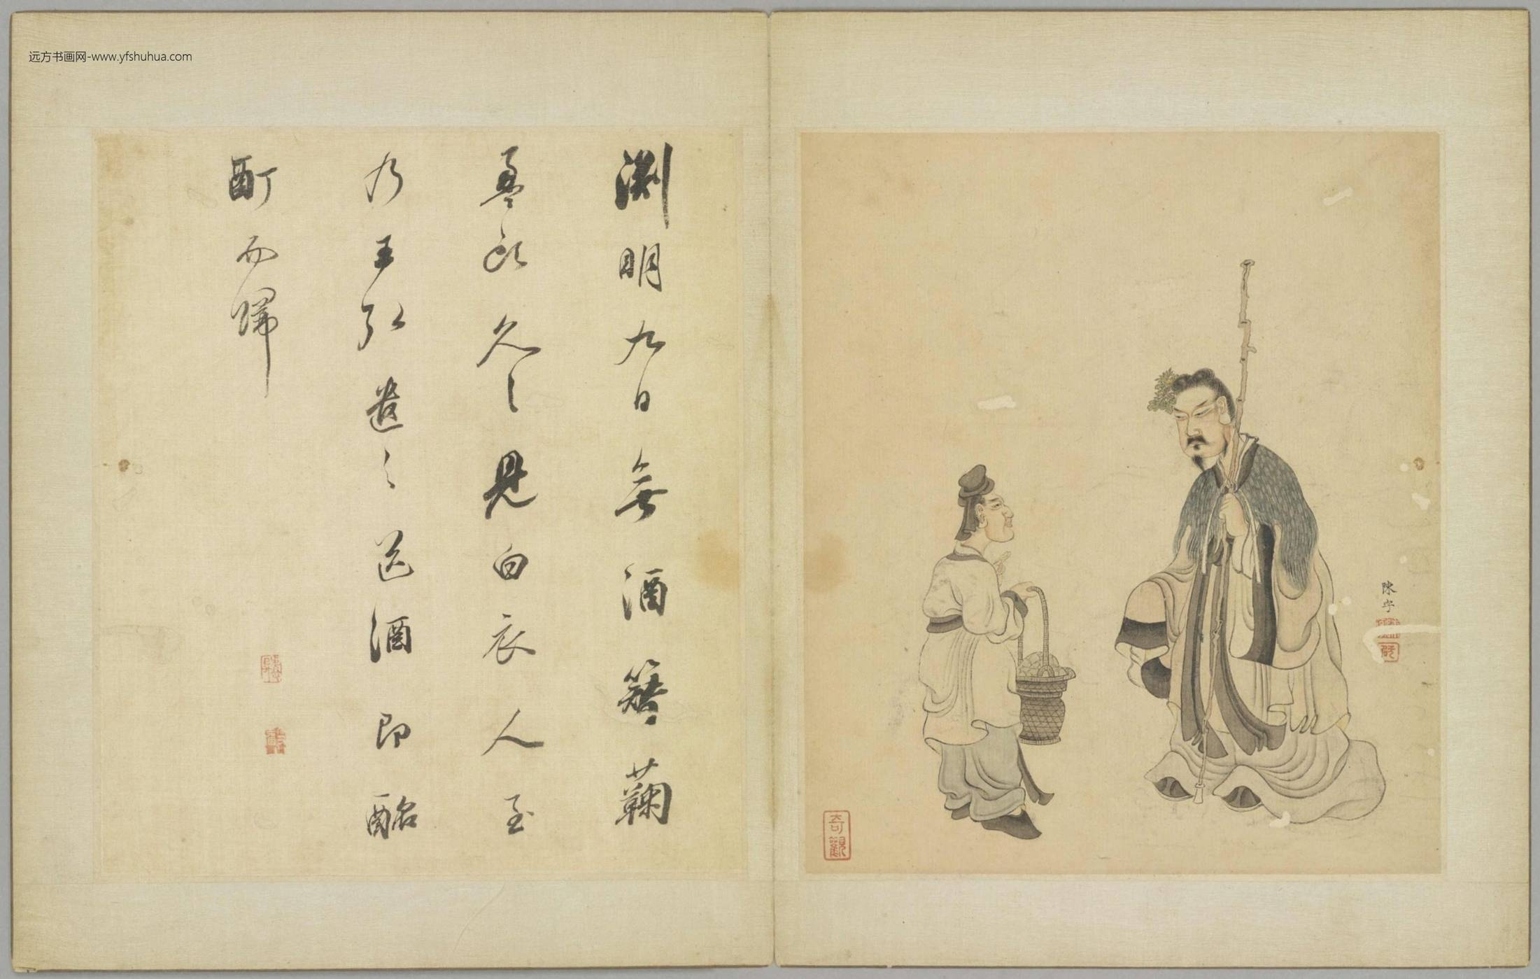 远方书画网-www.yfshuhua.com
淵明九日無酒簪菊
盈頭久之見白衣人至
乃王弘遣之送酒即酩
酊而歸
陳字
奇觀